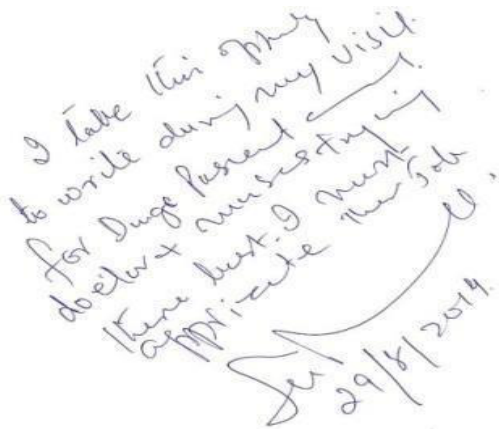 I take this
to write during my visit.
for
doctor + nurses trying
there best. I must
appriciate their Job
29/8/2014.